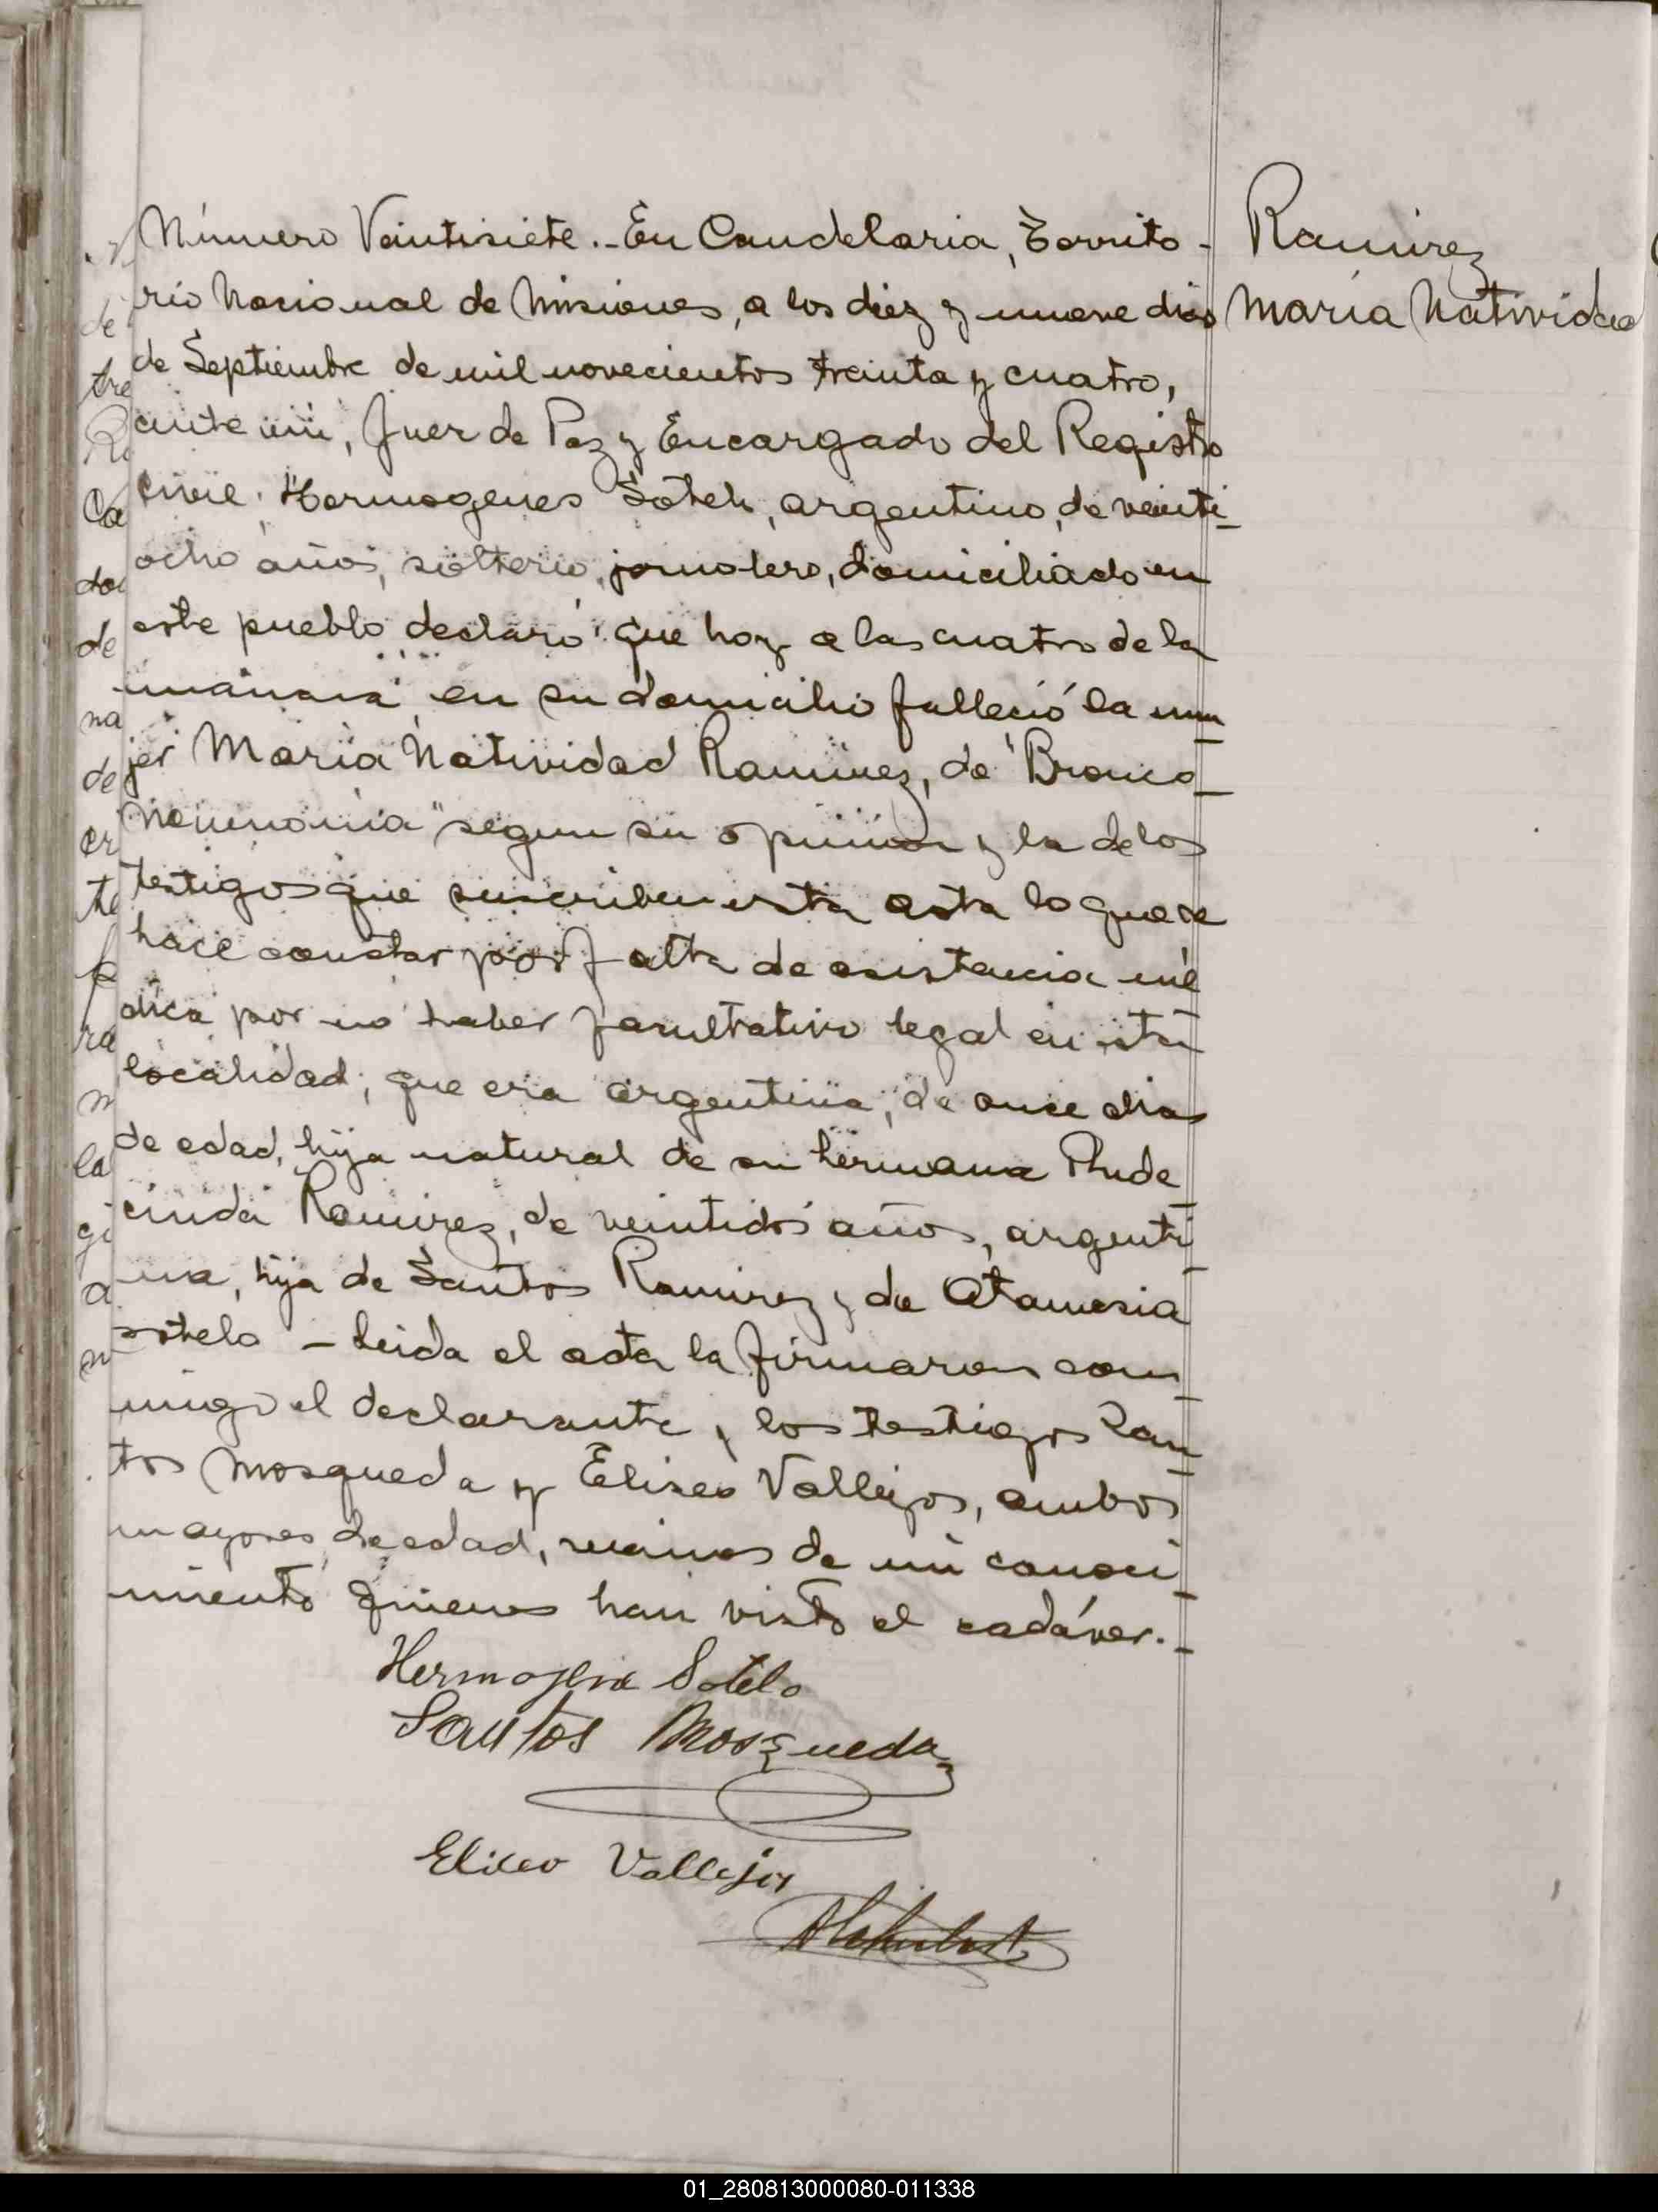 Ramirez
Maria Natividad
Número Veintisiete.- En Candelaria, Territo-
rio Nacional de Misiones, a los diez y nueve dias
de Septiembre de mil novecientos treinta y cuatro,
ante mi, Juez de Paz y Encargado del Registro
Civil, Hermogenes Sotelo, argentino, de veinti-
ocho años, soltero, jornalero, domiciliado en
este pueblo declaró: que hoy a las cuatro de la
mañana en su domicilio falleció la mu-
jer Maria Natividad Ramirez, de "Bronco-
neumonia" segun su opinion y la de los
testigos que suscriben esta acta lo que se
hace constar por falta de asistencia mé
dica por no haber facultativo legal en esta
localidad; que era argentina, de once dias
de edad, hija natural de su hermana Rude-
cinda Ramirez, de veintidos años, argenti-
na, hija de Santos Ramirez y de Atamesia
sotelo - Leida el acta la firmaron con-
migo el declarante y los testigos San-
tos Mosqueda y Eliseo Vallejos, ambos
mayores de edad, vecinos de mi conoci-
miento quienes han visto el cadáver.-
Hermogene Sotelo
Santos Mosqueda
Eliseo Vallejos
01_280813000080-011338